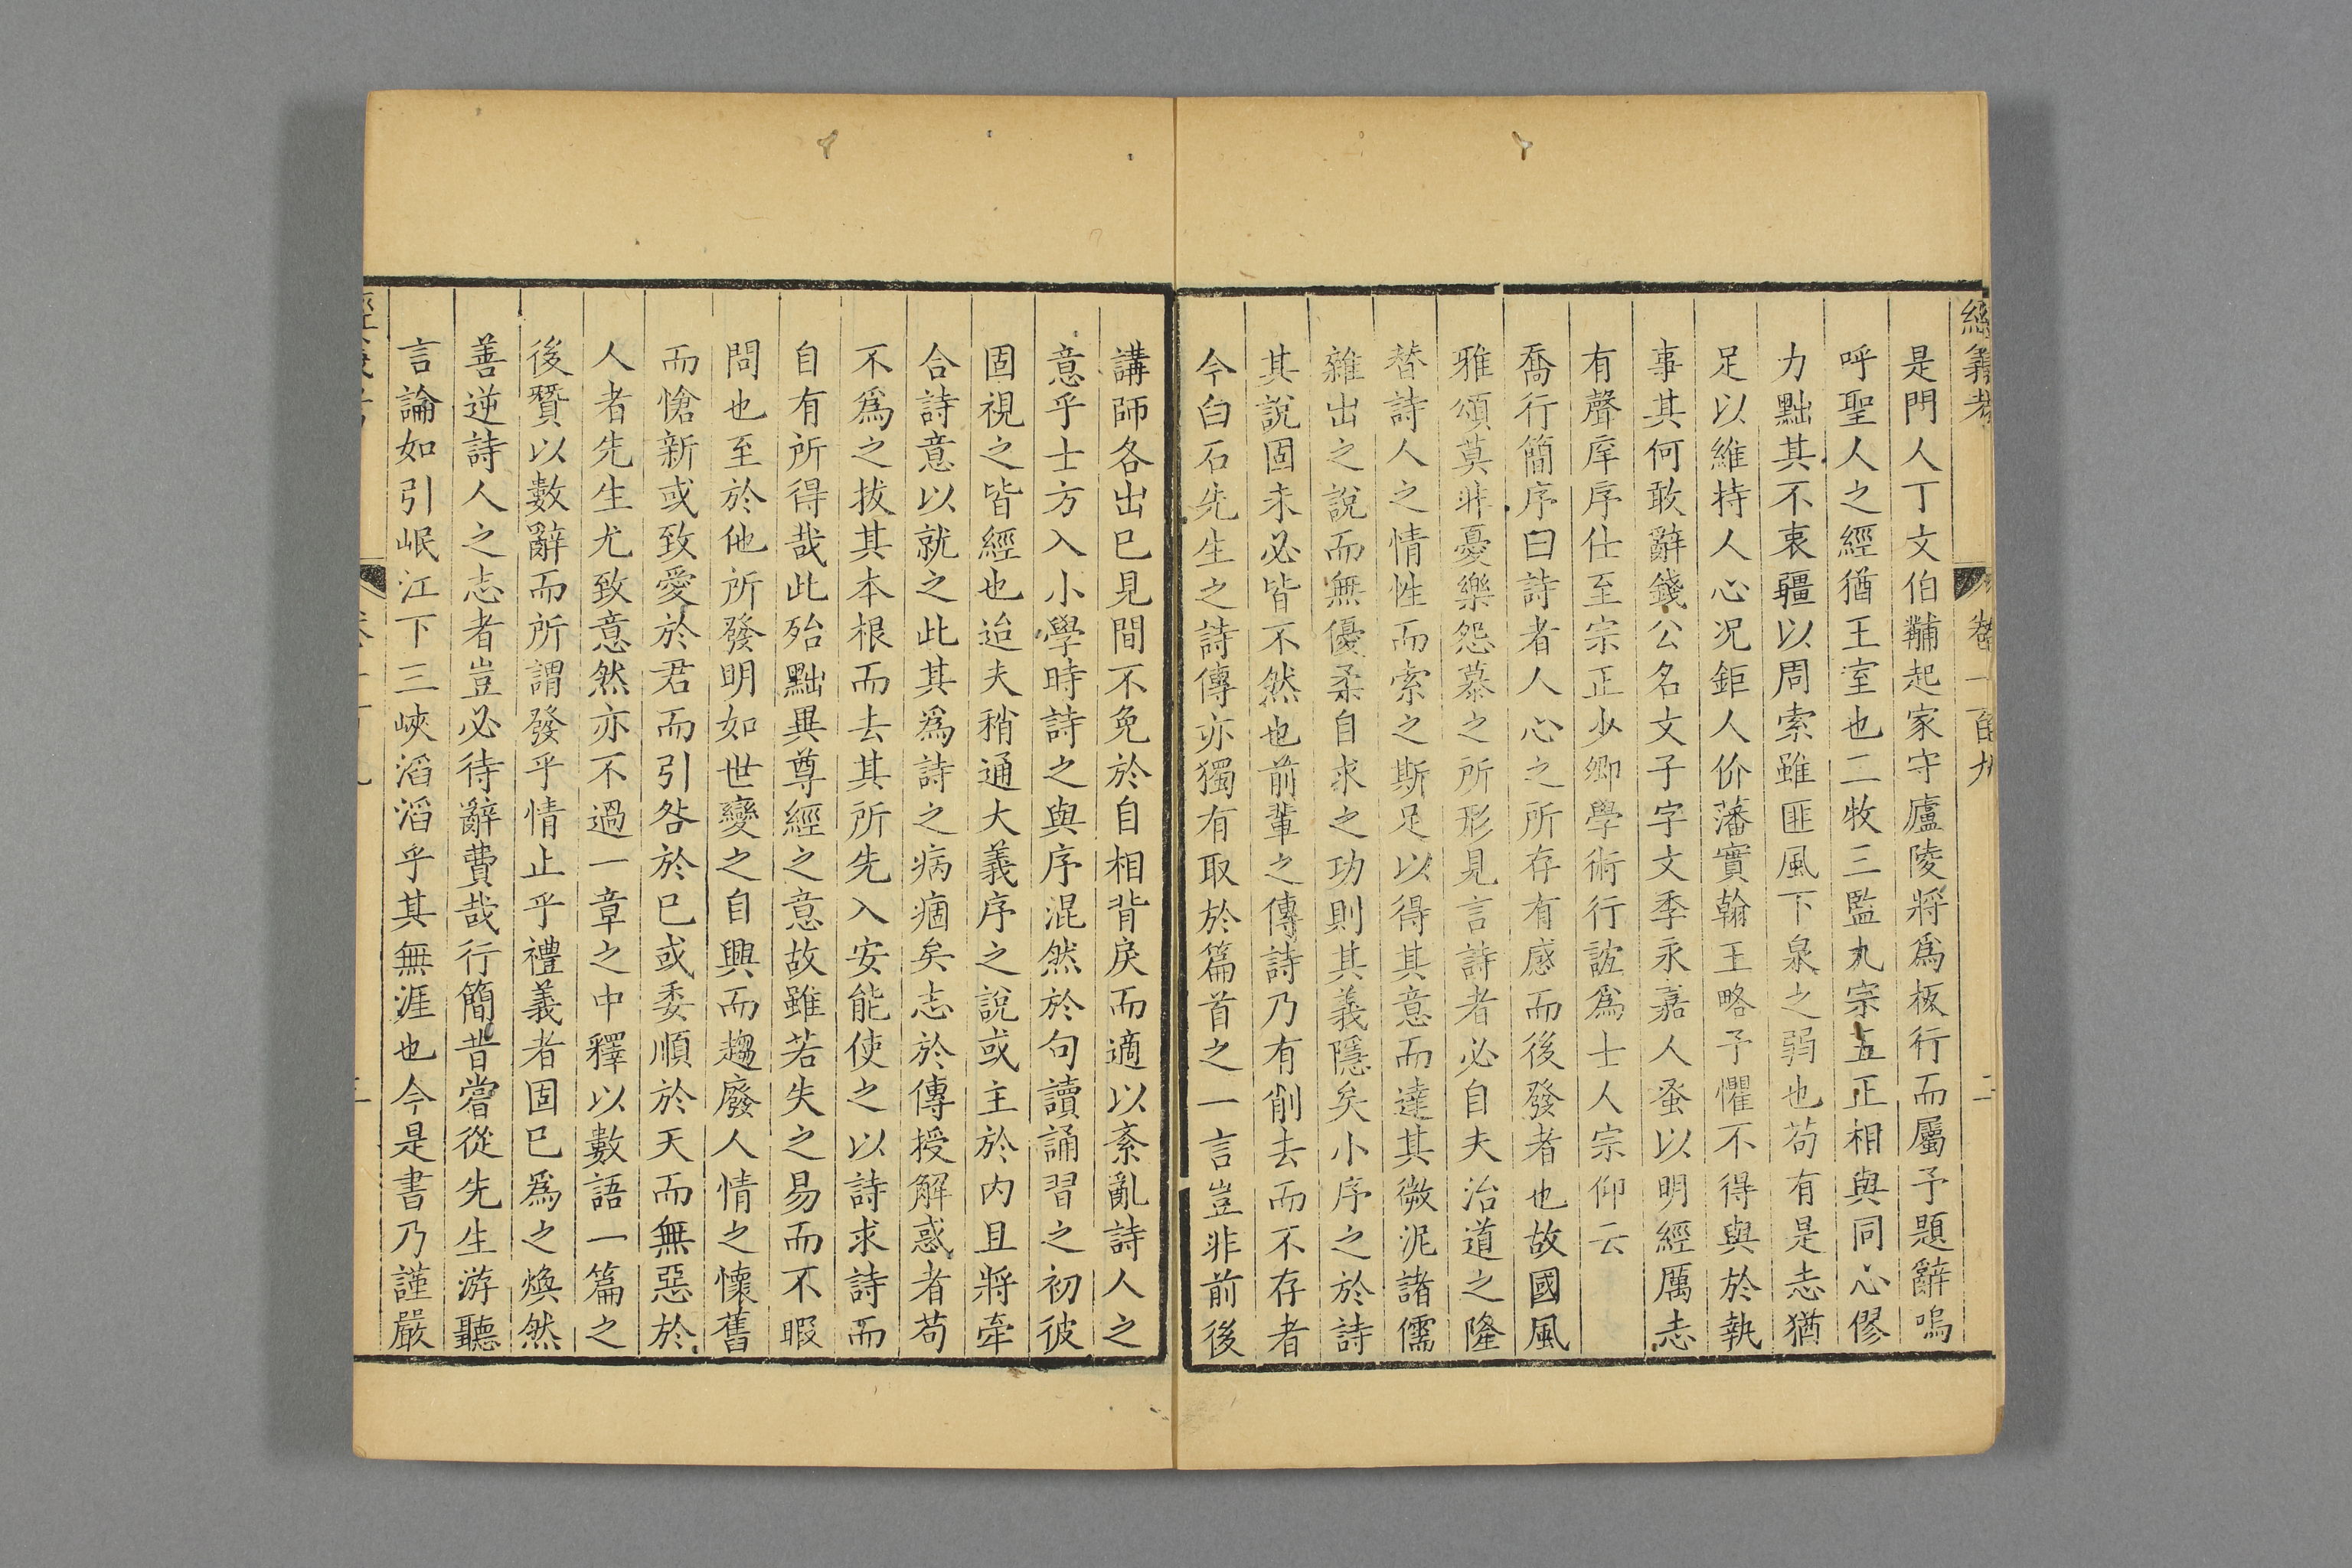 經義考 卷一百九 二
是門人丁文伯黼起家守廬陵將爲板行而屬予題辭嗚
呼聖人之經猶王室也二牧三監九宗五正相與同心僇
力黜其不衷疆以周索雖匪風下泉之弱也苟有是志猶
足以維持人心况鉅人价藩實翰王略予懼不得與於執
事其何敢辭錢公名文子字文季永嘉人蚤以明經厲志
有聲庠序仕至宗正少卿學術行誼爲士人宗仰云
喬行簡序曰詩者人心之所存有感而後發者也故國風
雅頌莫非憂樂怨慕之所形見言詩者必自夫治道之隆
替詩人之情性而索之斯足以得其意而達其微泥諸儒
雜出之說而無優柔自求之功則其義隱矣小序之於詩
其說固未必皆不然也前輩之傳詩乃有削去而不存者
今白石先生之詩傳亦獨有取於篇首之一言豈非前後
講師各出已見間不免於自相背戾而適以紊亂詩人之
意乎士方入小學時詩之與序混然於句讀誦習之初彼
固視之皆經也迨夫稍通大義序之說或主於内且將牽
合詩意以就之此其爲詩之病痼矣志於傳授解惑者苟
不爲之拔其本根而去其所先入安能使之以詩求詩而
自有所得哉此殆黜異尊經之意故雖若失之易而不暇
問也至於他所發明如世變之自興而趨廢人情之懷舊
而愴新或致愛於君而引咎於已或委順於天而無惡於
人者先生尤致意然亦不過一章之中釋以數語一篇之
後贊以數辭而所謂發乎情止乎禮義者固已爲之煥然
善逆詩人之志者豈必待辭費哉行簡昔嘗從先生游聽
言論如引岷江下三峽滔滔乎其無涯也今是書乃謹嚴